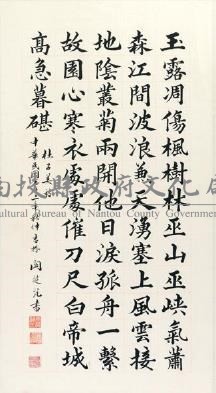 玉露凋傷楓樹林巫山巫峽氣蕭
森江間波浪兼天湧塞上風雲接
地陰叢菊兩開他日淚孤舟一繫
故園心寒衣處處催刀尺白帝城
高急暮砧
杜子美詩
中華民國
書
南投縣政府文化局
Cultural Bureau of Nantou County Government